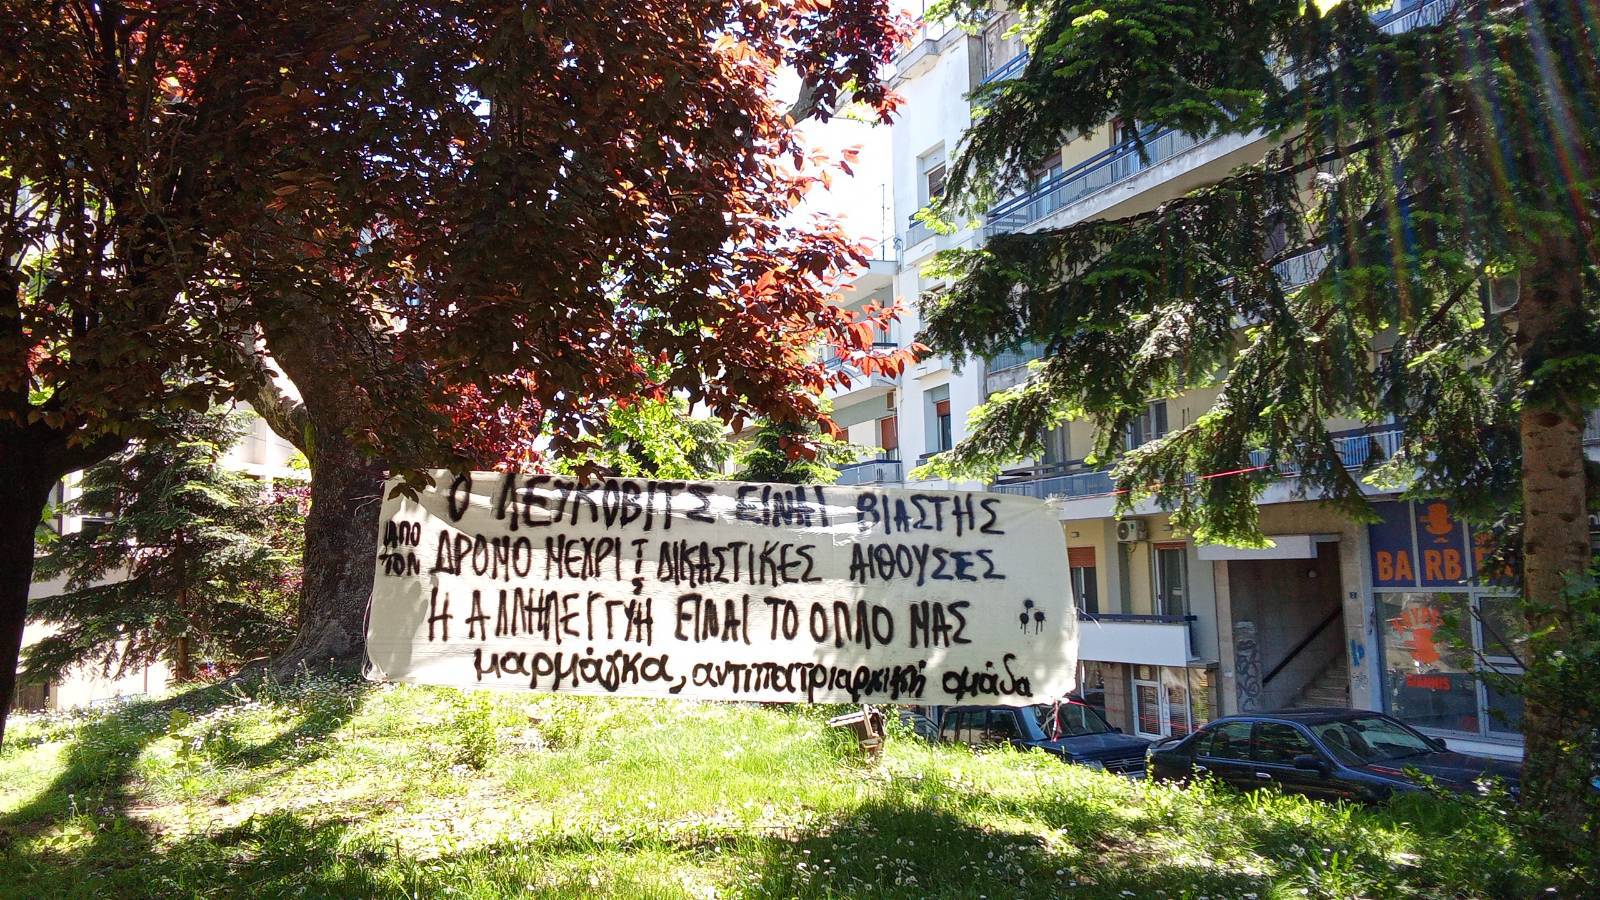 Ο ΛΕΥΚΟΒΙΤΣ ΕΙΝΑΙ ΒΙΑΣΤΗΣ
ΑΠΟ ΤΟΝ ΔΡΟΜΟ ΜΕΧΡΙ ΤΙΣ ΔΙΚΑΣΤΙΚΕΣ ΑΙΘΟΥΣΕΣ
Η ΑΛΛΗΛΕΓΓΥΗ ΕΙΝΑΙ ΤΟ ΟΠΛΟ ΜΑΣ
μαρμάγκα, αντιπατριαρχική ομάδα
BARB
GIANNIS